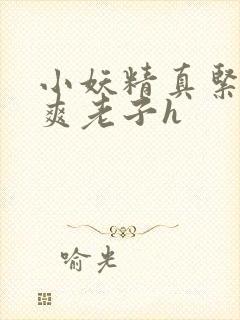 小妖精真緊
爽老子h
喻光